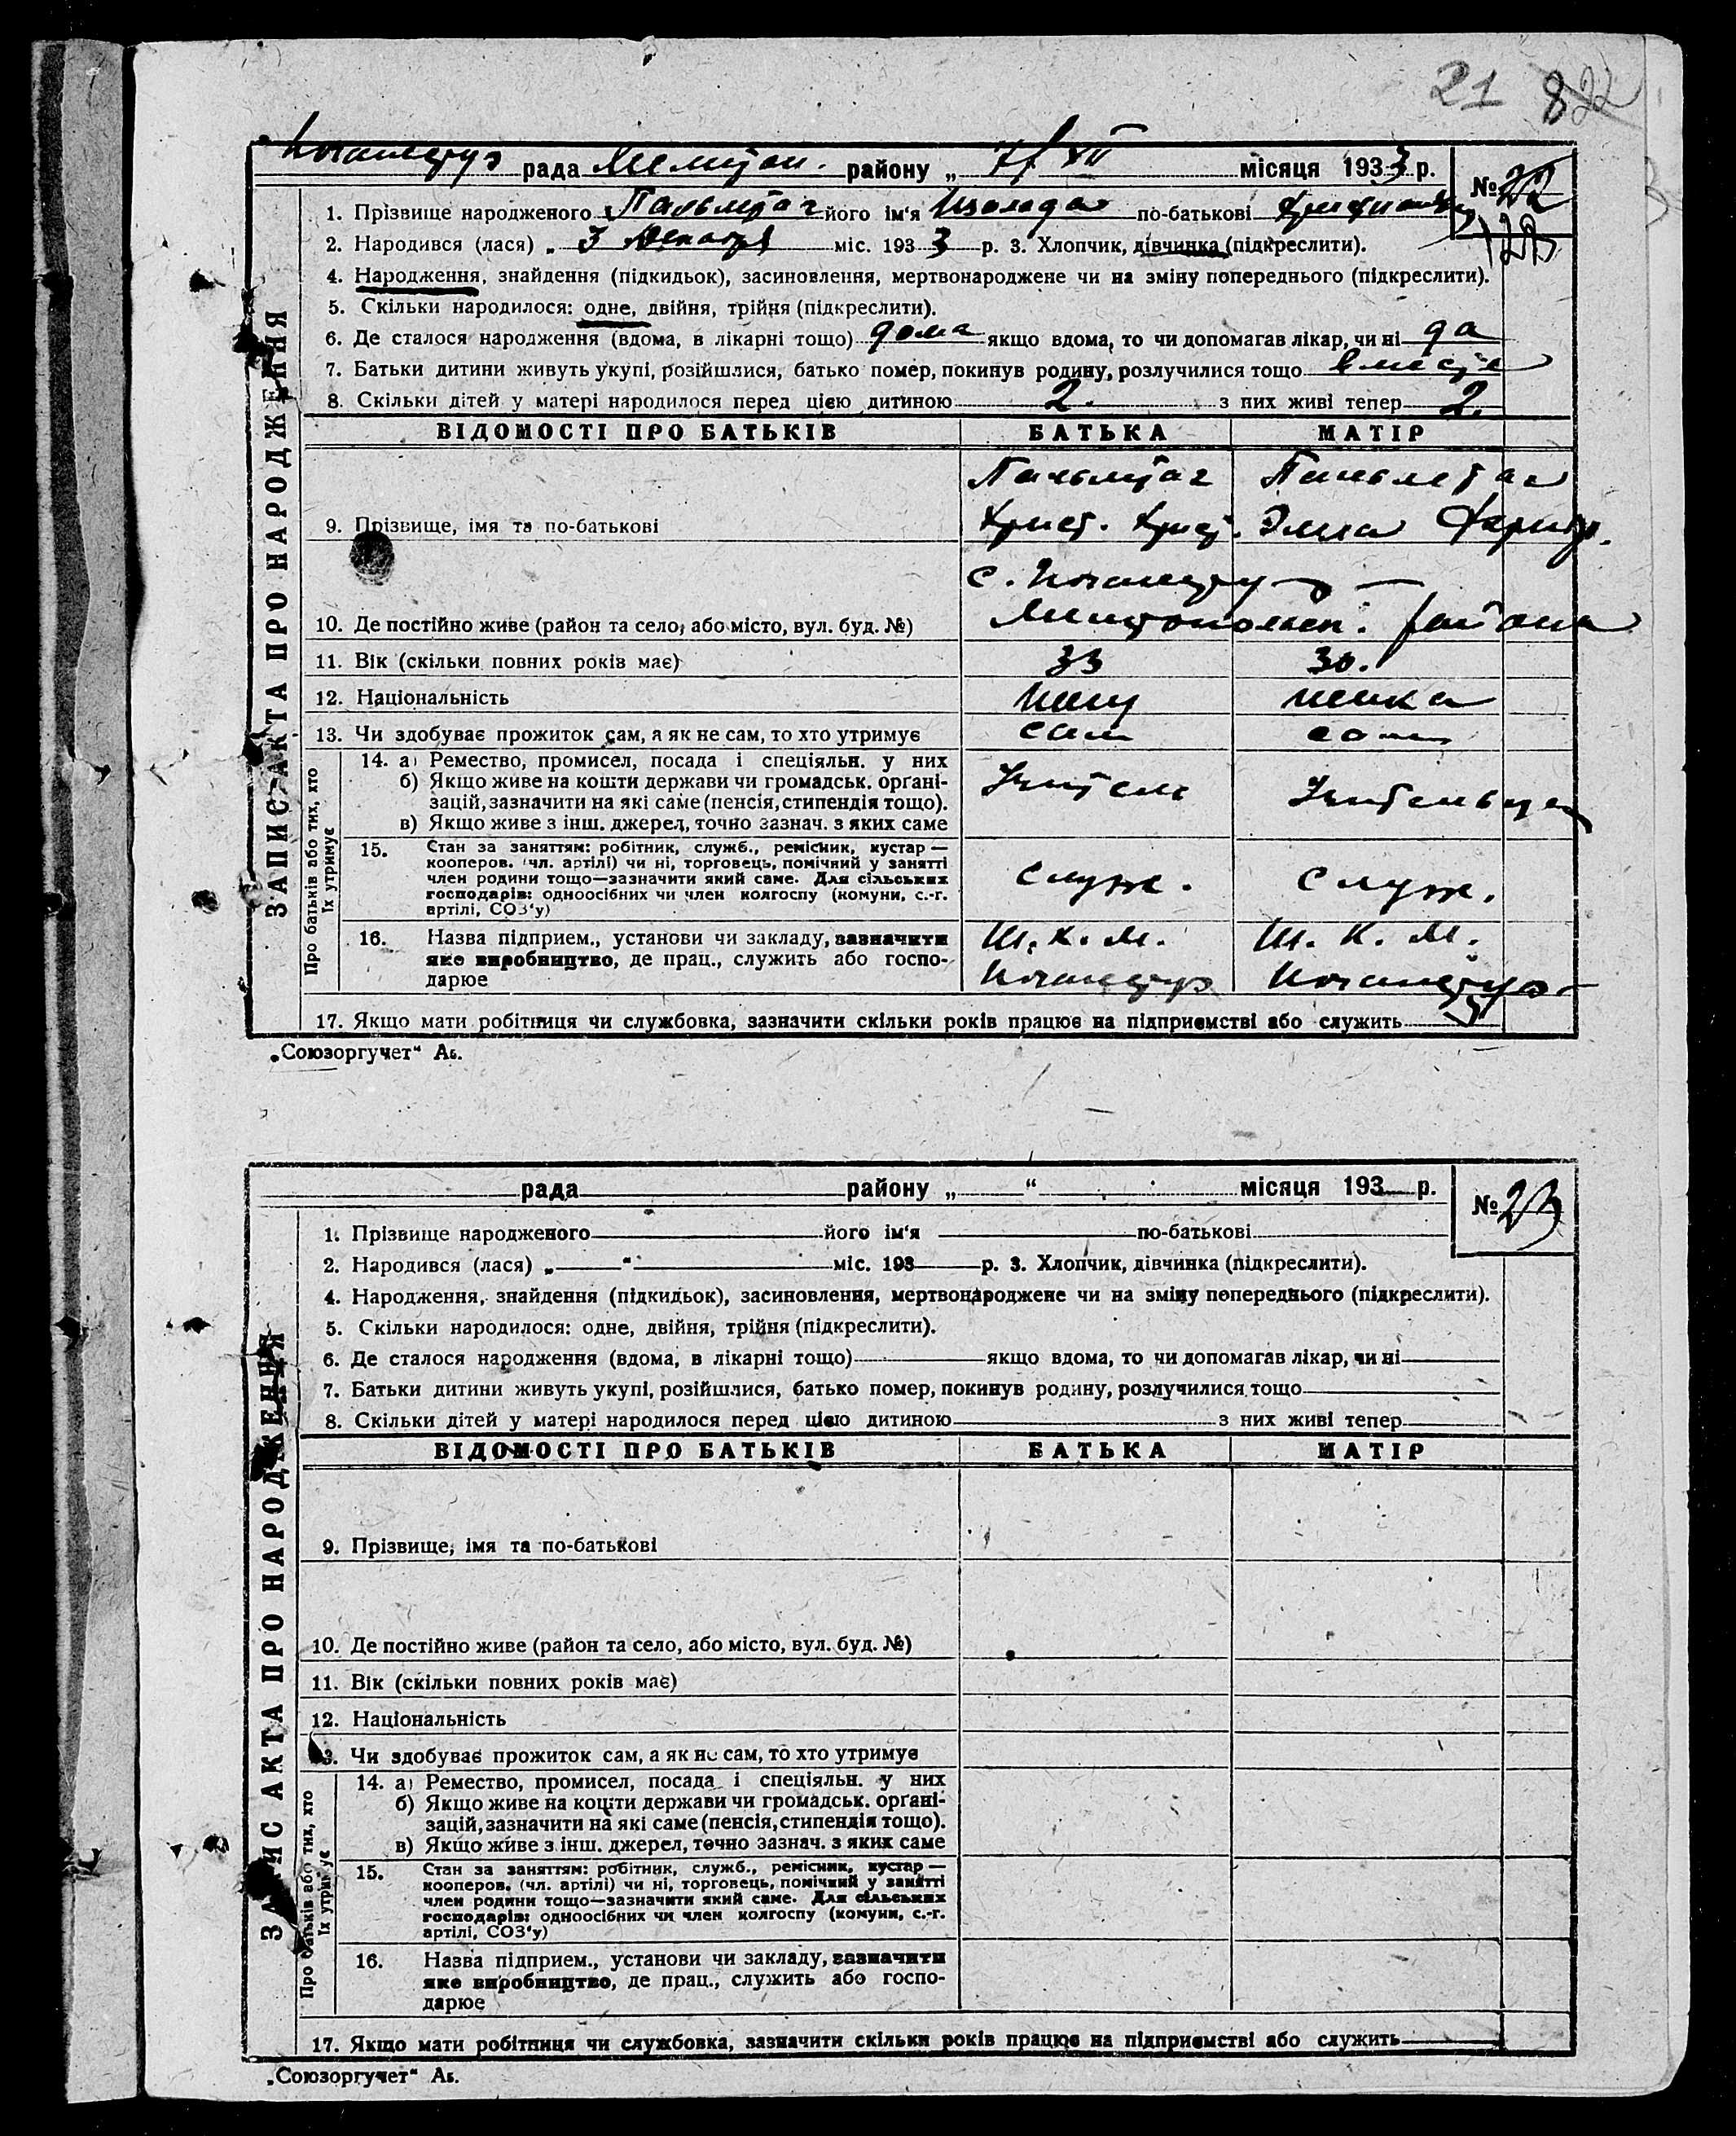 21 8 22
рада района „ XII місяця 1933 р.
№ 22
1. Прізвище народженого Пальмтаг його ім'я Изольда по-батькові
2. Народився (лася) „ 3 декабря міс. 1933 р. 3. Хлопчик, дівчинка (підкреслити).
4. Народження, знайдення (підкидьок), засиновлення, мертвонароджене чи на зміну попереднього (підкреслити).
5. Скільки народилося: одне, двійня, трійня (підкреслити).
6. Де сталося народження (вдома, в лікарні тощо) дома якщо вдома, то чи допомагав лікар, чи ні да
7. Батьки дитини живуть укупі, розійшлися, батько помер, покинув родину, розлучилися тощо вместе
8. Скільки дітей у матері народилося перед цією дитиною 2. з них живі тепер 2.
ЗАПИС АКТА ПРО НАРОДЖЕННЯ
ВІДОМОСТІ ПРО БАТЬКІВ БАТЬКА МАТІР
Пальмтаг Пальмтаг
9. Прізвище, імя та по-батькові Крист. Крист. Элла
с.
10. Де постійно живе (район та село, або місто, вул. буд. №) района
11. Вік (скільки повних років має) 33 30.
12. Національність немец немка
13. Чи здобуває прожиток сам, а як не сам, то хто утримує сам сам
Про батьків або тих, хто їх утримує
14. а) Ремество, промисел, посада і спеціяльн. у них
б) Якщо живе на кошти держави чи громадськ. орґані-
зацій, зазначити на які саме (пенсія, стипендія тощо).
в) Якщо живе з інш. джерел, точно зазнач. з яких саме
Учитель Учительница
15. Стан за заняттям: робітник, служб., ремісник, кустар —
кооперов. (чл. артілі) чи ні, торговець, помічний у занятті
член родини тощо—зазначити який саме. Для сільських
господарів: одноосібних чи член колгоспу (комуни, с.-г.
артілі, СОЗ'у)
служ. служ.
16. Назва підприєм., установи чи закладу, зазначити
яке виробництво, де прац., служить або госпо-
дарює
Ш. К. М. Ш. К. М.
17. Якщо мати робітниця чи службовка, зазначити скільки років працює на підприємстві або служить 5
„Союзоргучет“ Аь.
рада района „ “ місяця 193 р.
№ 23
1. Прізвище народженого його ім'я по-батькові
2. Народився (лася) „ “ міс. 193 р. 3. Хлопчик, дівчинка (підкреслити).
4. Народження, знайдення (підкидьок), засиновлення, мертвонароджене чи на зміну попереднього (підкреслити).
5. Скільки народилося: одне, двійня, трійня (підкреслити).
6. Де сталося народження (вдома, в лікарні тощо) якщо вдома, то чи допомагав лікар, чи ні
7. Батьки дитини живуть укупі, розійшлися, батько помер, покинув родину, розлучилися тощо
8. Скільки дітей у матері народилося перед цією дитиною з них живі тепер
ЗАПИС АКТА ПРО НАРОДЖЕННЯ
ВІДОМОСТІ ПРО БАТЬКІВ БАТЬКА МАТІР
9. Прізвище, імя та по-батькові
10. Де постійно живе (район та село, або місто, вул. буд. №)
11. Вік (скільки повних років має)
12. Національність
13. Чи здобуває прожиток сам, а як не сам, то хто утримує
Про батьків або тих, хто їх утримує
14. а) Ремество, промисел, посада і спеціяльн. у них
б) Якщо живе на кошти держави чи громадськ. орґані-
зацій, зазначити на які саме (пенсія, стипендія тощо).
в) Якщо живе з інш. джерел, точно зазнач. з яких саме
15. Стан за заняттям: робітник, служб., ремісник, кустар —
кооперов. (чл. артілі) чи ні, торговець, помічний у занятті
член родини тощо—зазначити який саме. Для сільських
господарів: одноосібних чи член колгоспу (комуни, с.-г.
артілі, СОЗ'у)
16. Назва підприєм., установи чи закладу, зазначити
яке виробництво, де прац., служить або госпо-
дарює
17. Якщо мати робітниця чи службовка, зазначити скільки років працює на підприємстві або служить
„Союзоргучет“ Аь.